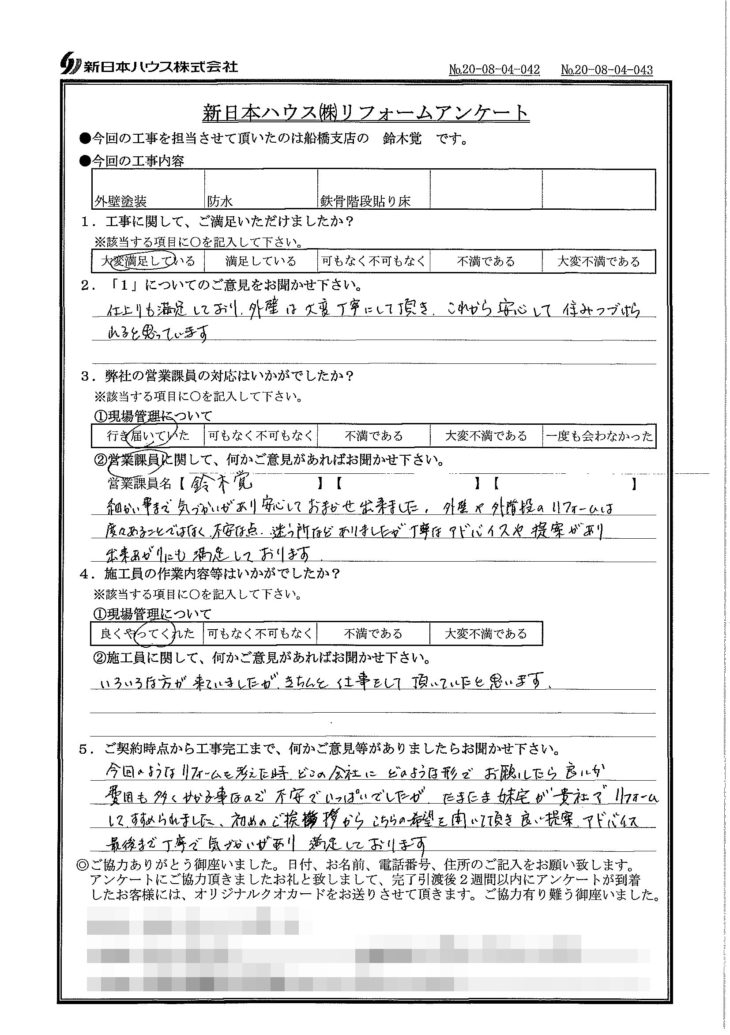 新日本ハウス株式会社
№20-08-04-042 №20-08-04-043
新日本ハウス㈱リフォームアンケート
●今回の工事を担当させて頂いたのは船橋支店の 鈴木覚 です。
●今回の工事内容
外壁塗装 防水 鉄骨階段貼り床
1．工事に関して、ご満足いただけましたか？
※該当する項目に〇を記入して下さい。
大変満足している 満足している 可もなく不可もなく 不満である 大変不満である
2．「1」についてのご意見をお聞かせ下さい。
仕上りも満足しており、外壁は大変丁寧にして頂き、これから安心して住みつづけら
れると思っています
3．弊社の営業課員の対応はいかがでしたか？
※該当する項目に〇を記入して下さい。
①現場管理について
行き届いていた 可もなく不可もなく 不満である 大変不満である 一度も会わなかった
②営業課員に関して、何かご意見があればお聞かせ下さい。
営業課員名【 鈴木覚 】【 】
細かい事まで気づかいがあり安心しておまかせ出来ました。外壁や外階段のリフォームは
度々あることではなく、不安な点、迷う所などありましたが丁寧なアドバイスや提案があり
出来あがりにも満足しております。
4．施工員の作業内容等はいかがでしたか？
※該当する項目に〇を記入して下さい。
①現場管理について
良くやってくれた 可もなく不可もなく 不満である 大変不満である
②施工員に関して、何かご意見があればお聞かせ下さい。
いろいろな方が来ていましたが、きちんと仕事をして頂いていたと思います。
5．ご契約時点から工事完工まで、何かご意見等がありましたらお聞かせ下さい。
今回のようなリフォームを考えた時、どこの会社にどのような形でお願いしたら良いか
費用も多くかかる事なので不安でいっぱいでしたが、たまたま妹宅が貴社でリフォーム
してすすめられました、初めのご挨拶からこちらの希望を聞いて頂き良い提案、アドバイス
最後まで丁寧で気づかいがあり満足しております
◎ご協力ありがとう御座いました。日付、お名前、電話番号、住所のご記入をお願い致します。
アンケートにご協力頂きましたお礼と致しまして、完了引渡後２週間以内にアンケートが到着
したお客様には、オリジナルクオカードをお送りさせて頂きます。ご協力有り難う御座いました。